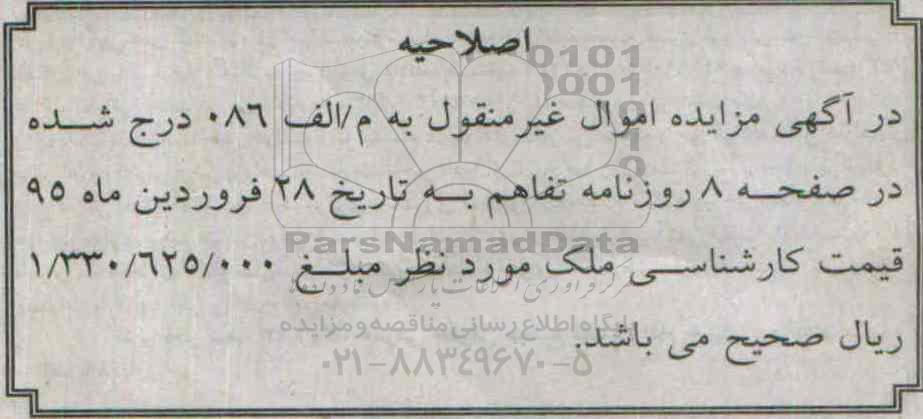 اصلاحیه
در آگهی مزایده اموال غیرمنقول به م/الف ۰۸۶ درج شده
در صفحه ۸ روزنامه تفاهم به تاریخ ۲۸ فروردین ماه ۹۵
قیمت کارشناسی ملک مورد نظر مبلغ ۱/۳۳۰/۶۲۵/۰۰۰
ریال صحیح می باشد.
0101
0001
ParsNamadData
پایگاه اطلاع رسانی مناقصه و مزایده
۰۲۱-۸۸۳۴۹۶۷۰-۵